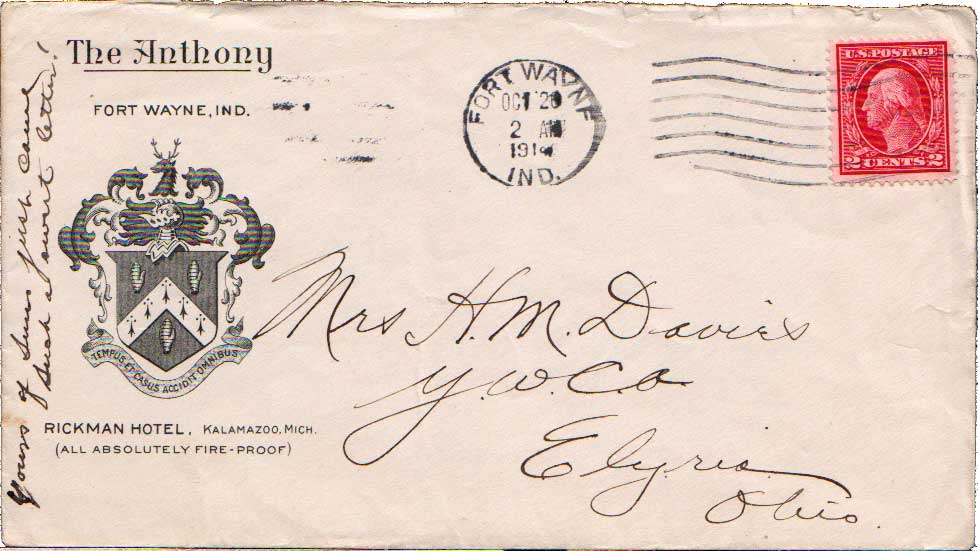 The Anthony
FORT WAYNE, IND.
TEMPUS ET CASUS ACCIDIT OMNIBUS
RICKMAN HOTEL, KALAMAZOO, MICH.
(ALL ABSOLUTELY FIRE-PROOF)
Yours of just came
Such a sweet letter!
FORT WAYNE
OCT 26
2 AM
1914
IND.
U.S. POSTAGE
2 CENTS 2
Mrs H. M. Davies
Y.W.C.A
Elyria
Ohio.